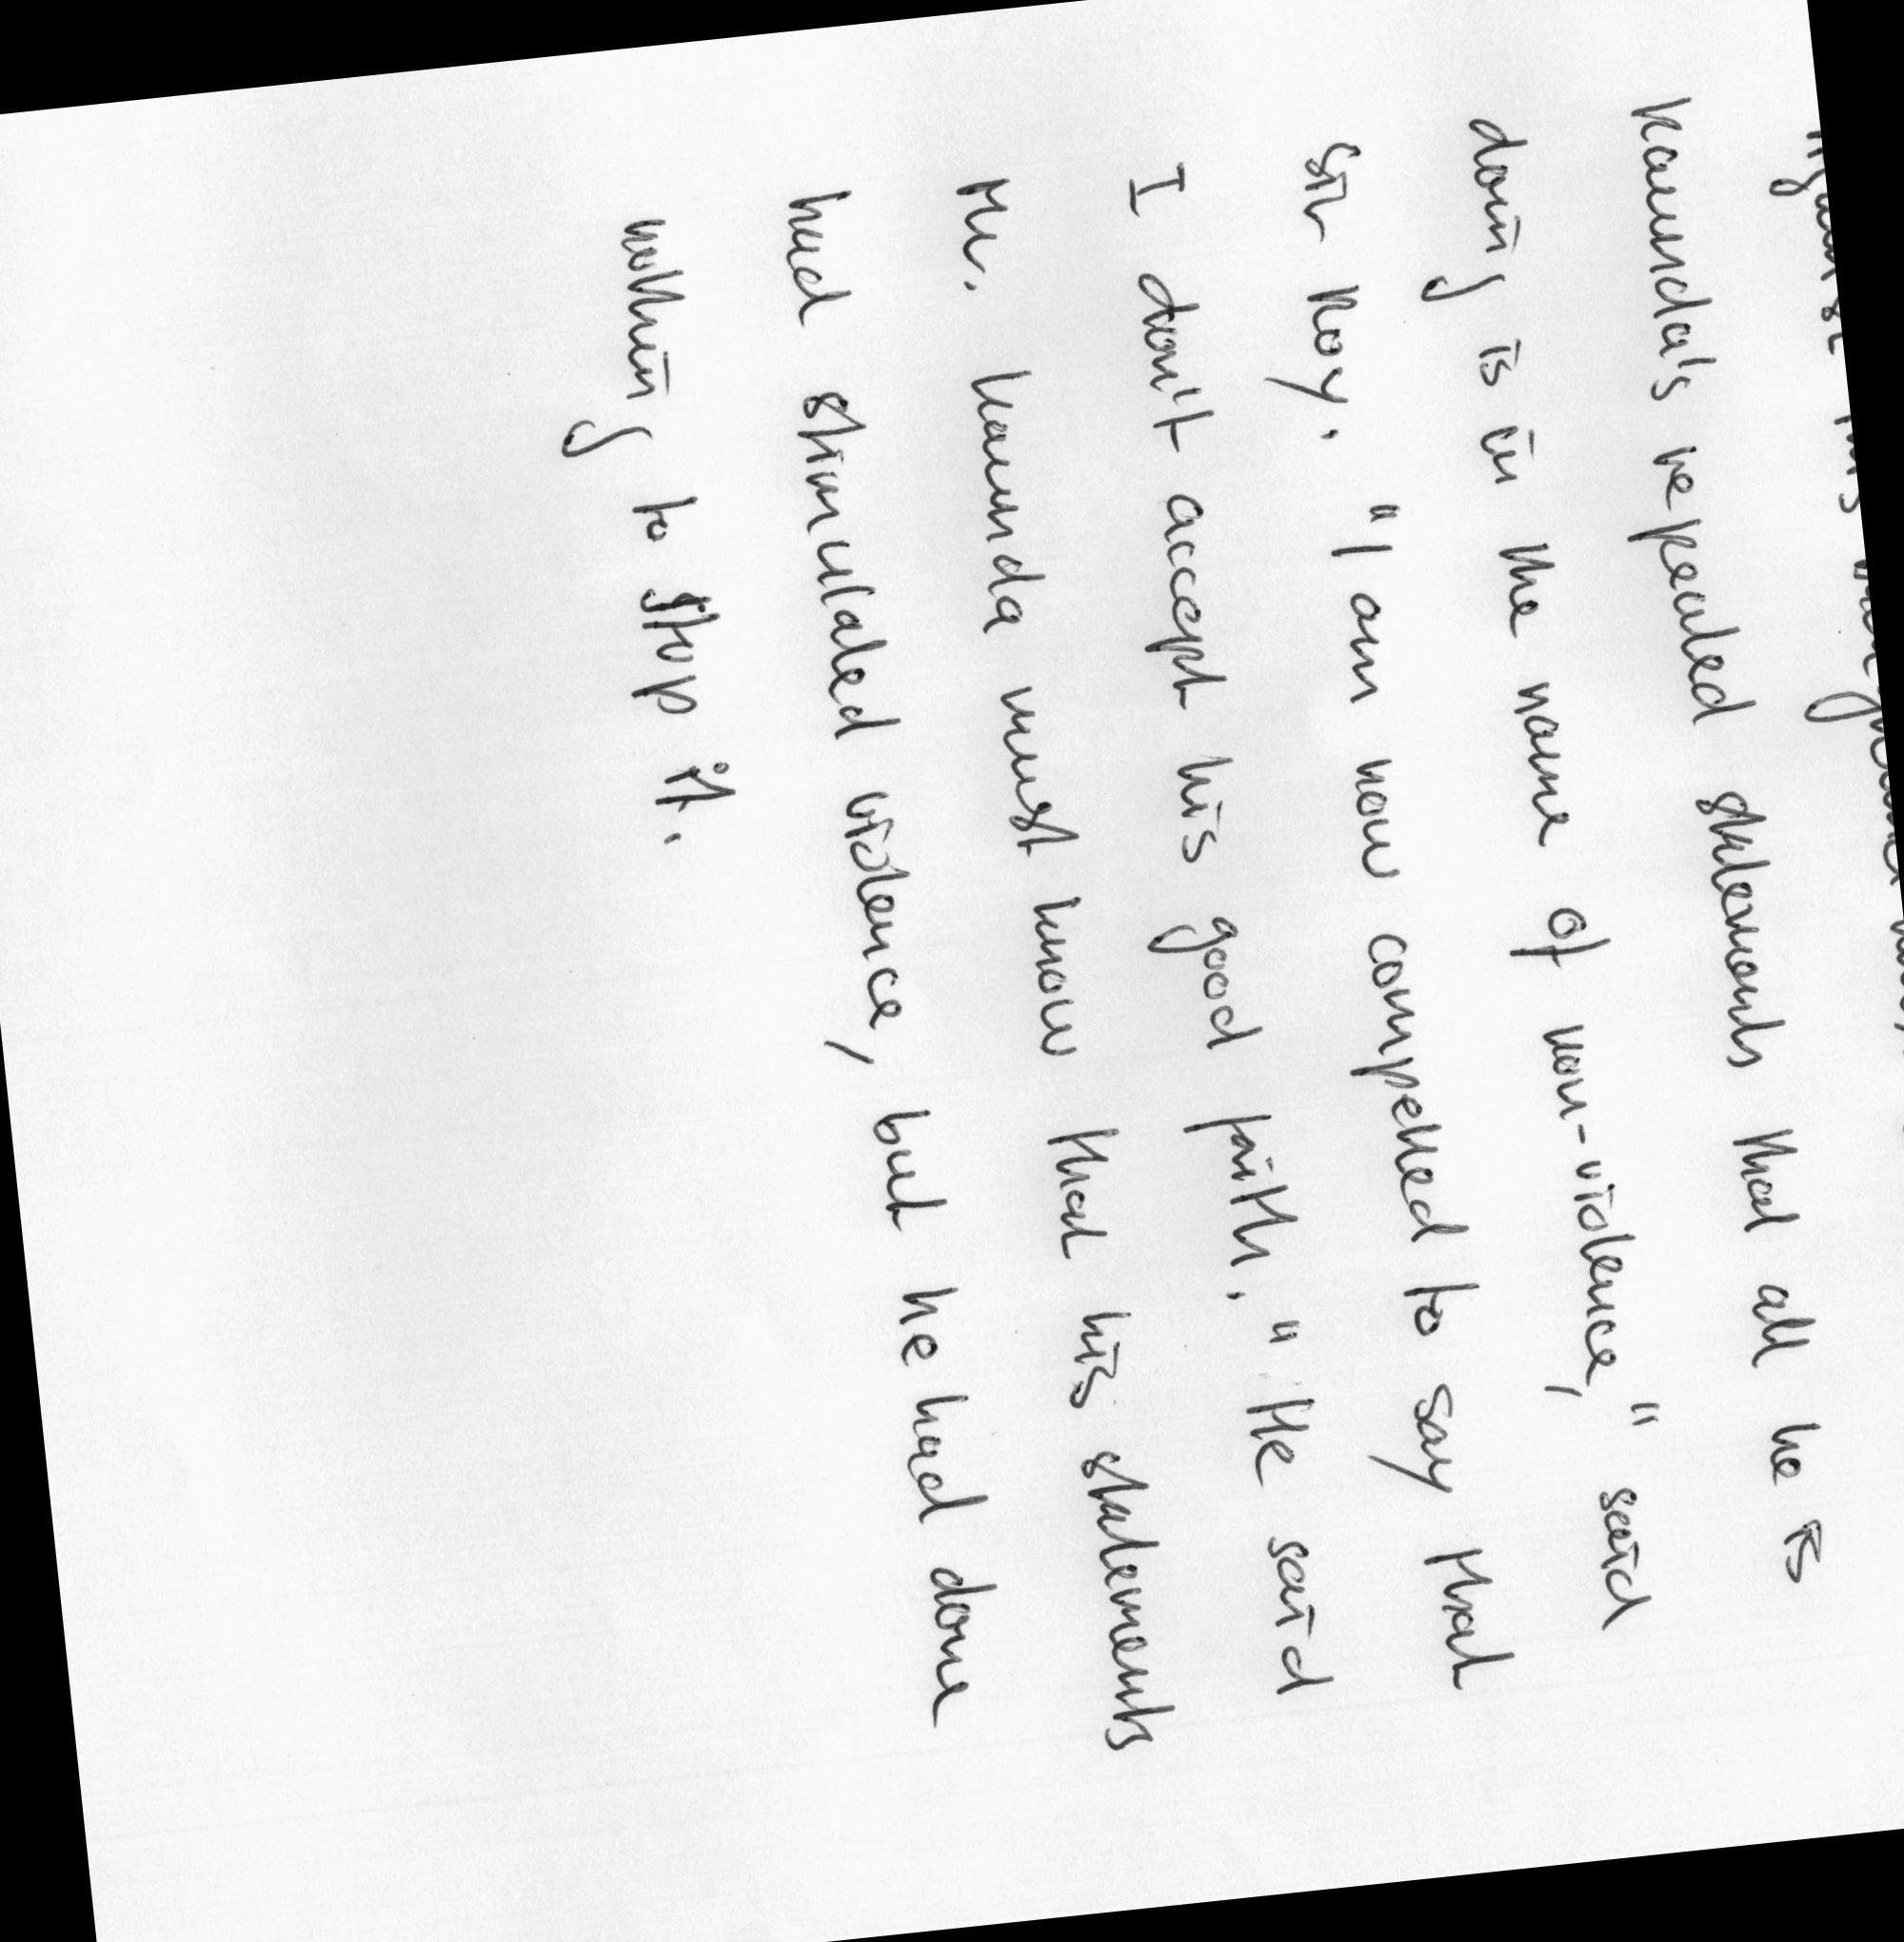 against this background
Kaunda's repeated statements that all he is
doing is in the name of non-violence," said
Sir Roy. "I am now compelled to say that
I don't accept his good faith." He said
Mr. Kaunda must know that his statements
had stimulated violence, but he had done
nothing to stop it.